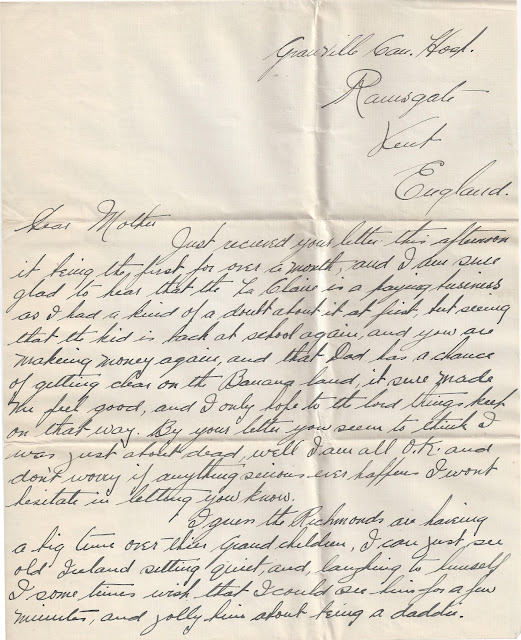 Granville Can. Hosp.
Ramsgate
Kent
England.
Dear Mother
Just recieved your letter this afternoon
it being the first for over a month, and I am sure
glad to hear that the La Claire is a paying business
as I had a kind of a doubt about it at first, but seeing
that the kid is back at school again, and you are
makeing money again, and that Dad has a chance
of getting clear on the land, it sure made
me feel good, and I only hope to the lord things keep
on that way. By your letter you seem to think I
was just about dead, well I am all O.K. and
don't worry if anything serious ever happens I wont
hesitate in letting you know.
I guess the Richmonds are having
a big time over thier Grand children, I can just see
old Ireland setting quiet and, laughing to himself
I some times wish that I could see him for a few
minutes, and jolly him about being a daddie.